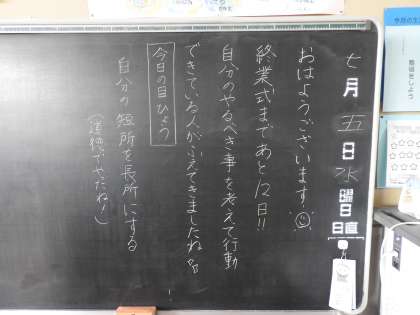 七月五日水曜日
日直
おはようございます!
終業式まであと12日!!
自分のやるべき事を考えて行動
できている人がふえてきましたね
今日の目ひょう
自分の短所を長所にする